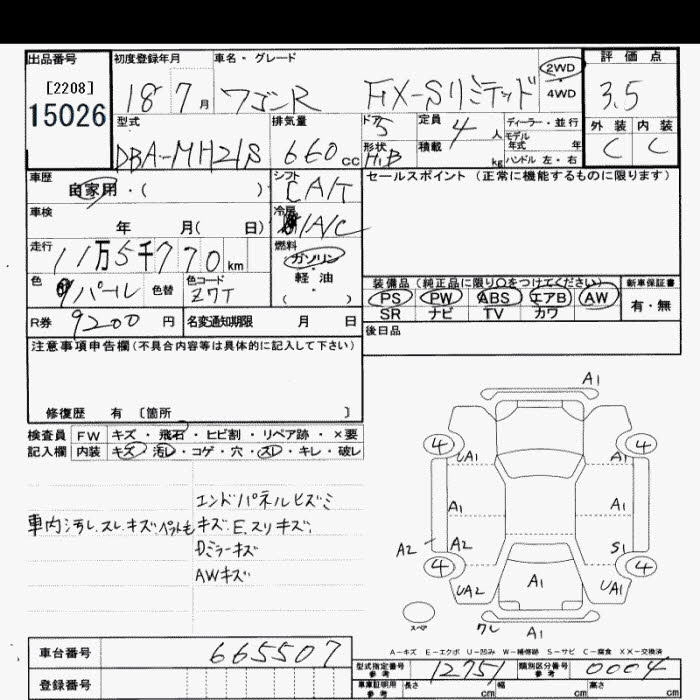 出品番号 初度登録年月 車名・グレード 2WD 評価点
[2208]
15026 18 7月 ワゴンR FX-Sリミテッド 4WD 3.5
型式 排気量 ドア 5 定員 4人 ディーラー・並行 外装 内装
DBA-MH21S 660cc 形状 H.B 積載 kg モデル年式 年 ハンドル 左・右 C C
車歴 自家用・( ) シフト CA/T セールスポイント(正常に機能するものに限ります)
車検 年 月( 日) 冷房 A/C
走行 11万5千770km 燃料 ガソリン
軽油
( )
色 パール 色替 色コード Z7T 装備品(純正品に限り○をつけてください) 新車保証書
PS PW ABS エアB AW 有・無
SR ナビ TV カワ
R券 9200円 名変通知期限 月 日 後日品
注意事項申告欄(不具合内容等は具体的に記入して下さい)
修復歴 有 〔箇所 〕
検査員 FW キズ・飛石・ヒビ割・リペア跡・×要
記入欄 内装 キズ・汚レ・コゲ・穴・スレ・キレ・破レ
エンドパネルヒズミ
車内汚レ.スレ.キズ.ペットも キズ.E.スリキズ.
Dミラーキズ
AWキズ
A1
4 4
UA1 A1
A1 A1
A2 A2 S1
4 4
UA2 A1 UA1
スペア ワレ A1
A-キズ E-エクボ U-凹み W-補修跡 S-サビ C-腐食 XX-交換済
車台番号 665507 型式指定番号 参考 12751 類別区分番号 参考 0004
登録番号 車庫証明用 参考 長さ cm 幅 cm 高さ cm